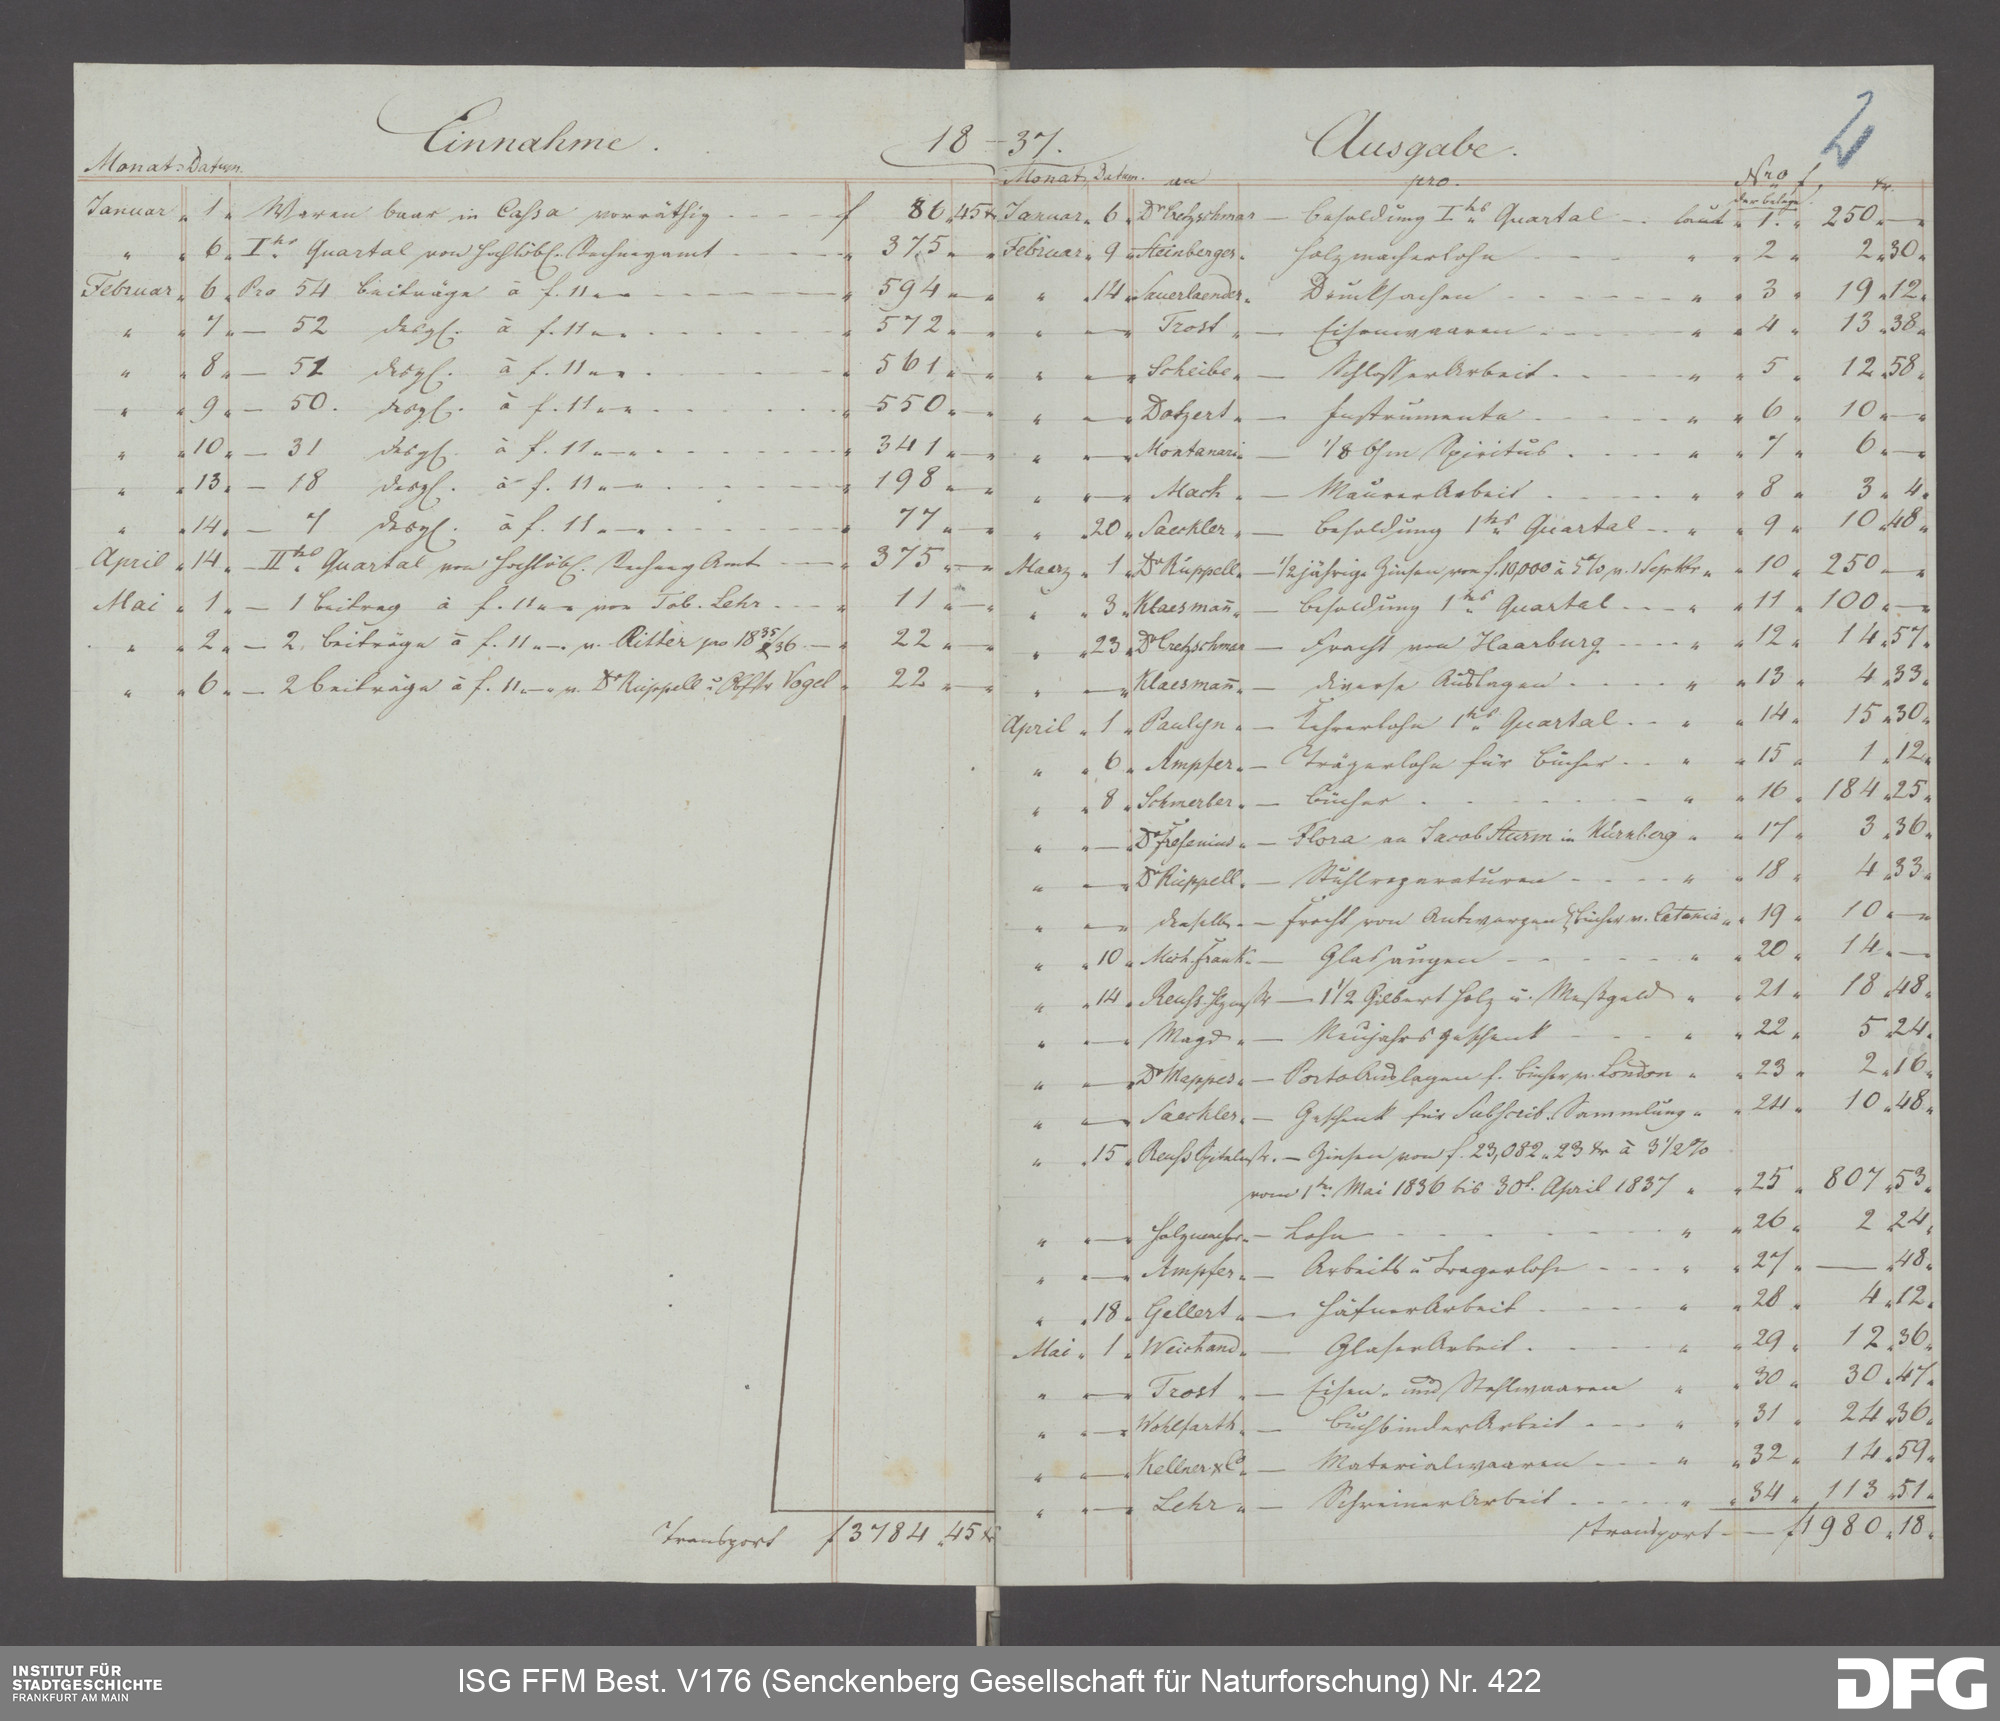 Einnahme. 18-37.
Monat. Datum.
Januar 1 Waren baar in Cassa vorräthig f 86 45 kr
" 6 I tes Quartal von Hochlöbl. Rechneyamt 375 —
Februar 6 Pro 54 Beiträge à f. 11 594 —
" 7 — 52 desgl. à f. 11 572 —
" 8 — 51 desgl. à f. 11 561 —
" 9 — 50. desgl. à f. 11 550 —
" 10 — 31 desgl. à f. 11 341 —
" 13 — 18 desgl. à f. 11 198 —
" 14 — 7 desgl. à f. 11 77 —
April 14 — II tes Quartal von Hochlöbl. Rechney Amt 375 —
Mai 1 — 1 Beitrag à f. 11 von Tob. Lehr 11 —
" 2 — 2 Beiträge à f. 11 v. Ritter pro 18 35/36 22 —
" 6 — 2 Beiträge à f. 11 v. Dr Rüppell u. Vogel 22 —
Transport f 3784 45 kr
Ausgabe.
Monat Datum. an pro. Nro der Belege. f. kr.
Januar 6 Dr Cretzschmar — Besoldung I tes Quartal laut 1. 250 —
Februar 9 Steinberger Holzmacherlohn 2 2 30
" 14 Sauerlaender Drucksachen 3 19 12
" — Trost — Eisenwaaren 4 13 38
" — Scheibe — Schlosser Arbeit 5 12 58
" — Dotzert — Instrumente 6 10 —
" — Montanari — 1/8 Ohm Spiritus 7 6 —
" — Mack — Maurer Arbeit 8 3 4
" 20 Saeckler — Besoldung 1 tes Quartal 9 10 48
Maerz 1 Dr Rüppell — 1/2 jährige Zinsen von f. 10,000 à 5 % v. 1 Septbr 10 250 —
" 3 Klaesmañ — Besoldung 1 tes Quartal 11 100 —
" 23 Dr Cretzschmar — Fracht von Haarburg 12 14 57
" — Klaesmañ — diverse Auslagen 13 4 33
April 1 Paulyn — Kehrerlohn 1 tes Quartal 14 15 30
" 6 Ampfer — Trägerlohn für Bücher 15 1 12
" 8 Schmerber — Bücher 16 184 25
" — Dr Fresenius — Flora an Jacob Sturm in Nürnberg 17 3 36
" — Dr Rüppell — Stuhlreparaturen 18 4 33
" — derselbe — Fracht von Antwerpen Bücher v. Catania 19 10 —
" 10 Mich. Frank — Glasaugen 20 14 —
" 14 Reuss — 1 1/2 Gilbert Holz u. Meßgeld 21 18 48
" — Magd — Neujahrsgeschenk 22 5 24
" — Dr Mappes — Porto Auslagen f. Bücher v. London 23 2 16
" — Saeckler — Geschenk für Subscrib. Sammlung 24 10 48
" 15 Reuss — Zinsen von f. 23,082 23 kr à 3 1/2 %
vom 1 ten Mai 1836 bis 30t. April 1837 25 807 53
" — Holzmacher — Lohn 26 2 24
" — Ampfer — Arbeits u Tragerlohn 27 — 48
" 18 Gellert — Häfner Arbeit 28 4 12
Mai 1 Weickand — Glaser Arbeit 29 12 36
" — Trost — Eisen- und Stahlwaaren 30 30 47
" — Wohlfarth — Buchbinder Arbeit 31 24 36
" — Kellner & Co — Materialwaaren 32 14 59
" — Lehr — Schreiner Arbeit 34 113 51
Transport — f 1980 18
INSTITUT FÜR
STADTGESCHICHTE
FRANKFURT AM MAIN
ISG FFM Best. V176 (Senckenberg Gesellschaft für Naturforschung) Nr. 422
DFG